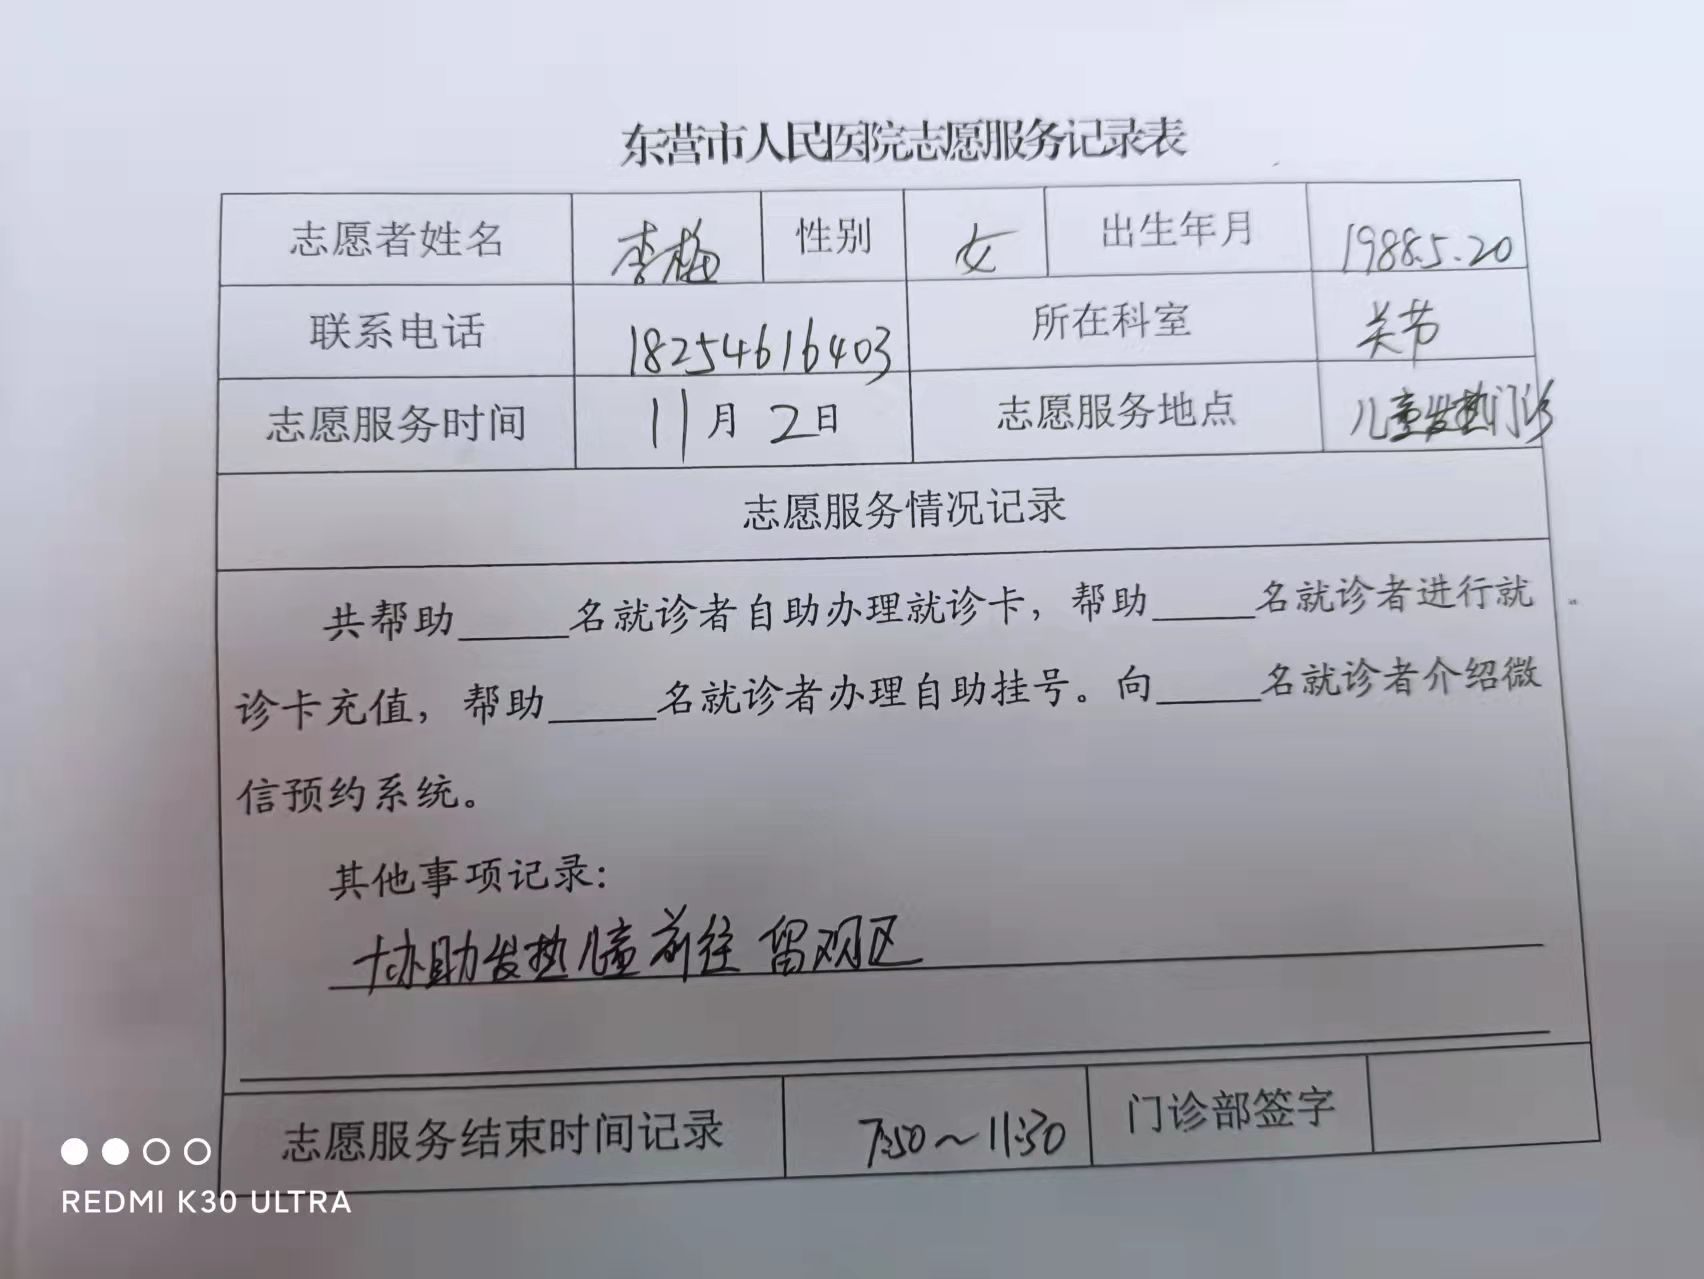 东营市人民医院志愿服务记录表
志愿者姓名 李梅 性别 女 出生年月 1988.5.20
联系电话 18254616403 所在科室 关节
志愿服务时间 11月2日 志愿服务地点 儿童发热门诊
志愿服务情况记录
共帮助_____名就诊者自助办理就诊卡，帮助_____名就诊者进行就
诊卡充值，帮助_____名就诊者办理自助挂号。向_____名就诊者介绍微
信预约系统。
其他事项记录：
协助发热儿童前往留观区
志愿服务结束时间记录 7:50～11:30 门诊部签字
REDMI K30 ULTRA